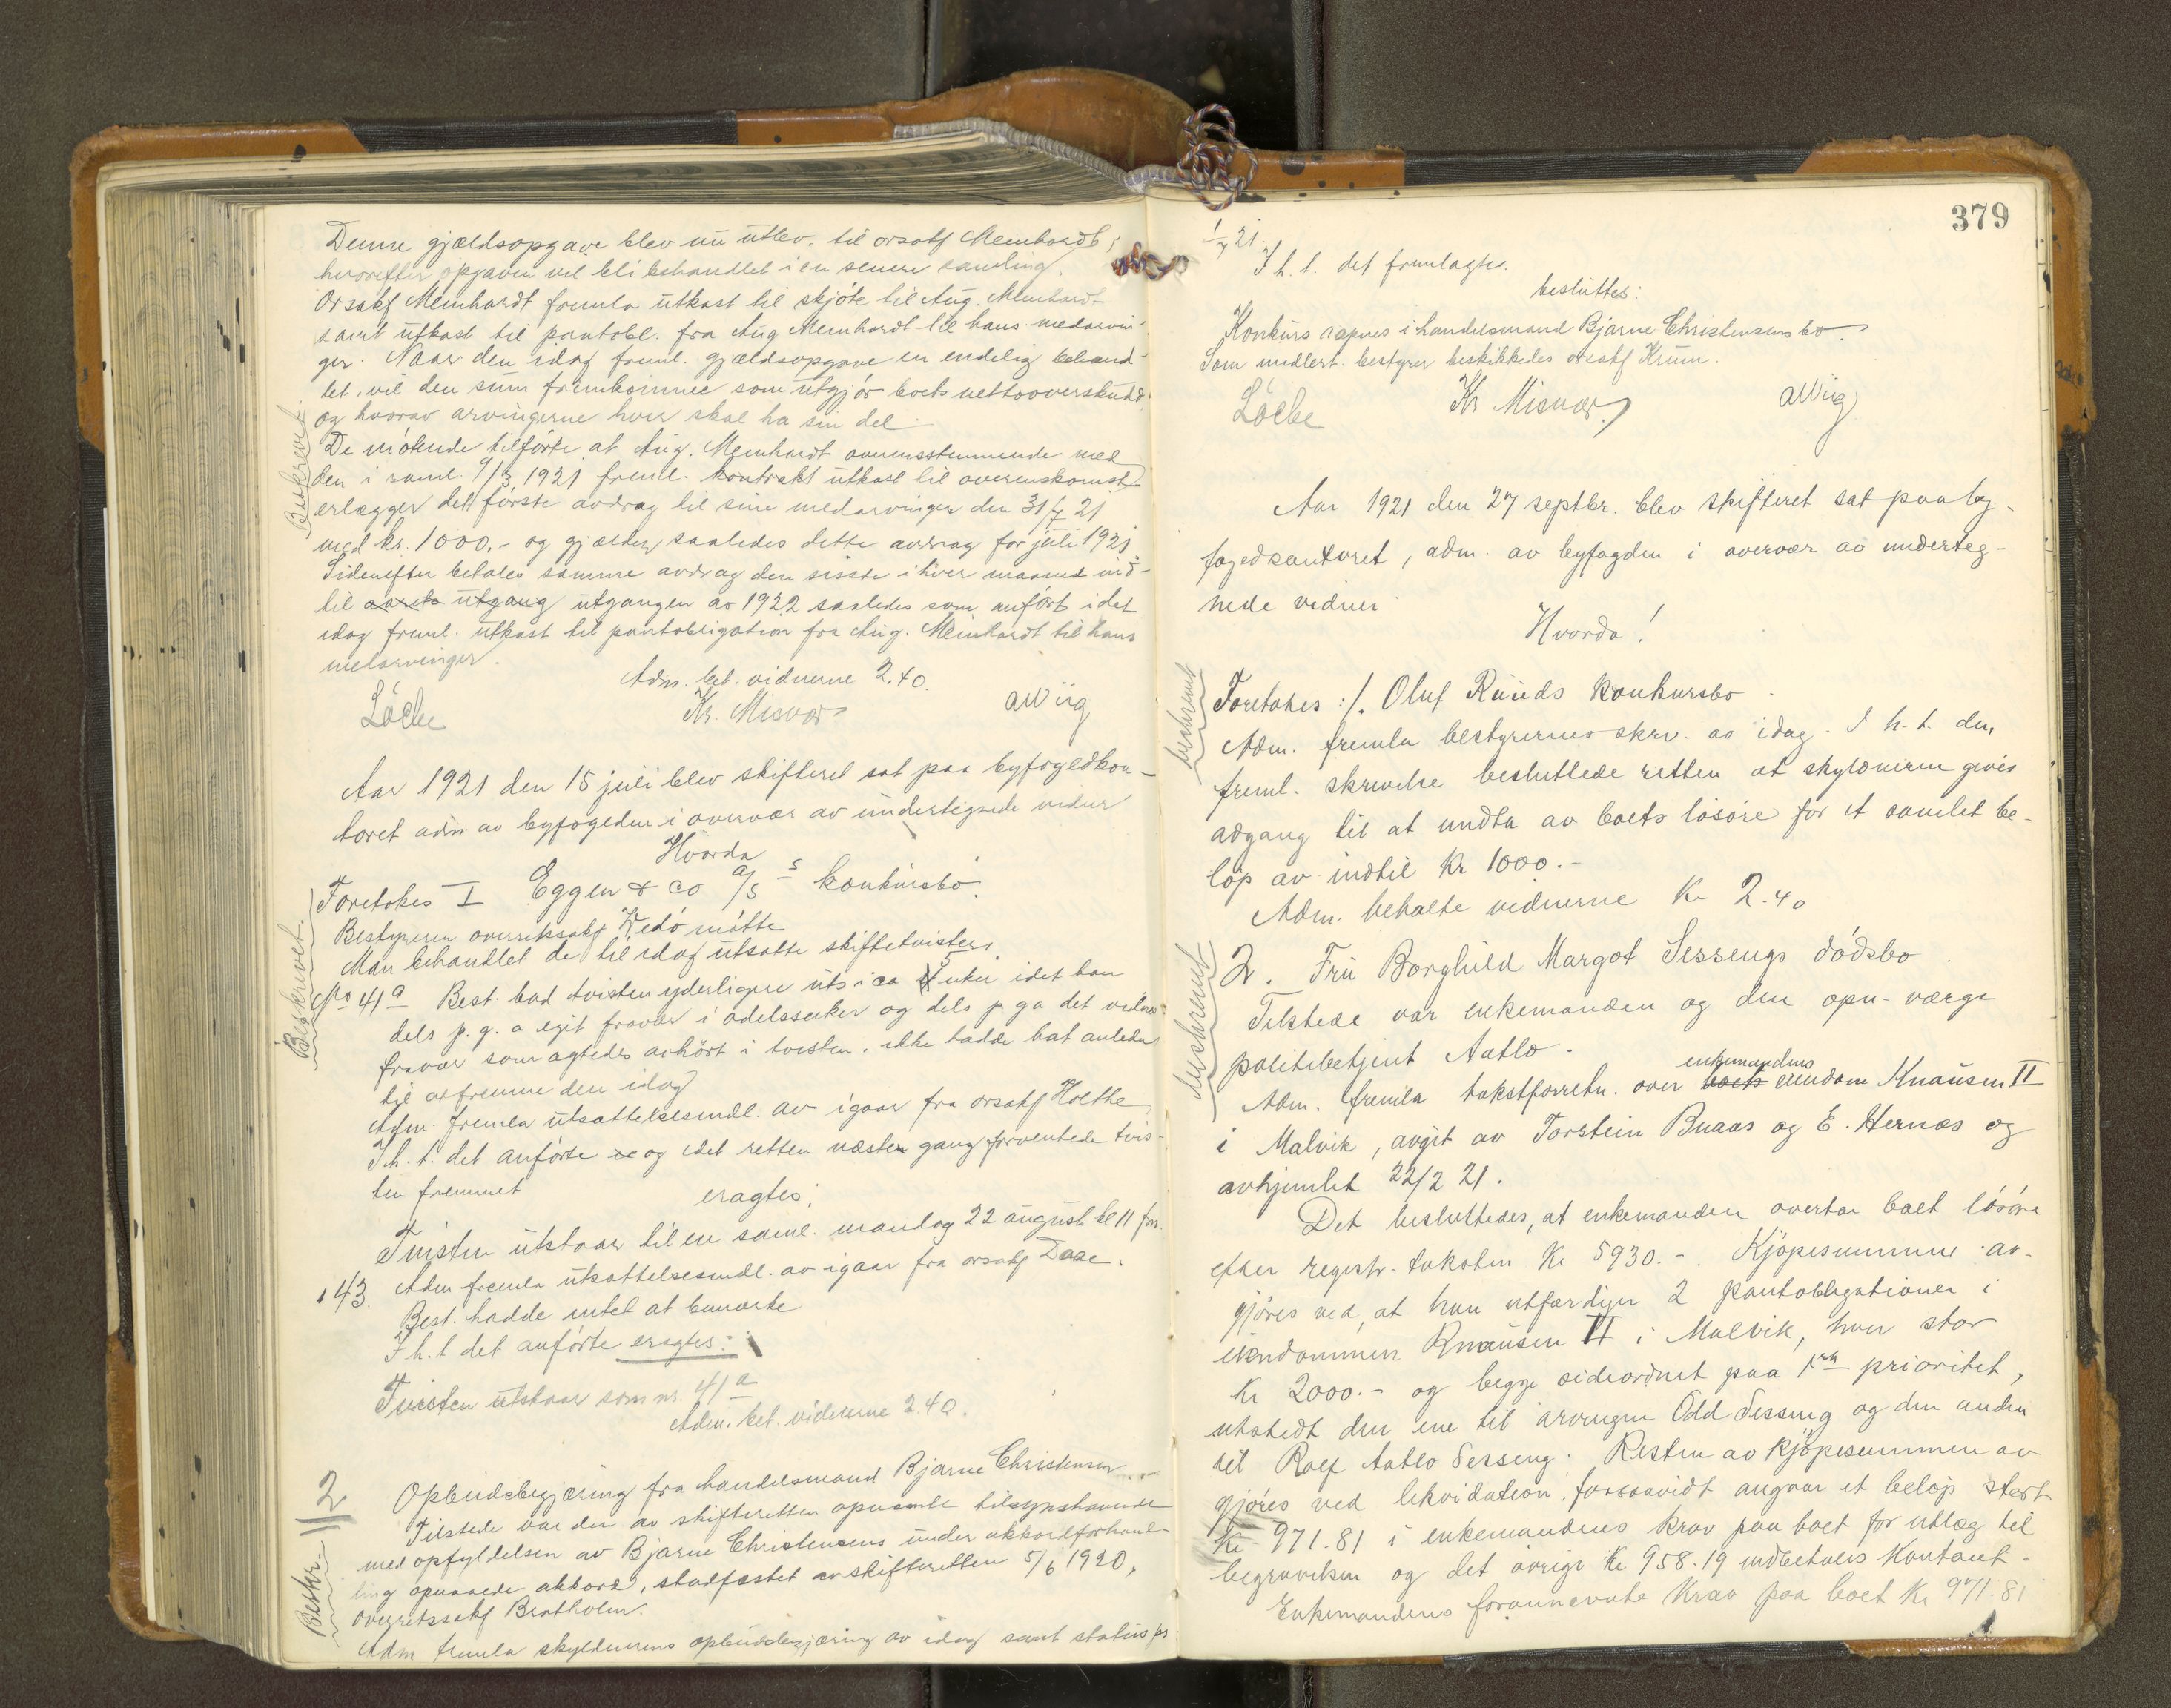 Denne gjældsopgave blev nu utlev. til orsakf Meinhardt,
hvorefter opgaven vil bli behandlet i en senere samling.
Orsakf Meinhardt fremla utkast til skjøte til Aug. Meinhardt
samt utkast til pantobl. fra Aug Meinhardt til hans medarvin-
ger. Naar den idag freml. gjældsopgave er endelig behand-
let, vil den sum fremkomme som utgjør boets nettooverskudd
og hvorav arvingerne hver skal ha sin del.
De møtende tilførte at Aug. Meinhardt overensstemmende med
den i saml. 9/3 1921 freml. kontrakt utkast til overenskomst
erlægger det første avdrag til sine medarvinger den 31/7 21
med kr. 1000,- og gjælder saaledes dette avdrag for juli 1921
Sidenefter betales samme avdrag den siste i hver maaned ind-
til aarets utgang utgangen av 1922 saaledes som anført i det
idag freml. utkast til pantobligation fra Aug. Meinhardt til hans
medarvinger.
Beskrevet.
Adm. bet. vidnerne 2.40.
Löche Kr. Misvær AWiig
Aar 1921 den 15 juli blev skifteret sat paa byfogedkon-
toret adm av byfogeden i overvær av undertegnede vidner
Hvorda
Foretokes I Eggen & co A/S s konkursbo.
Beskrevet.
Bestyreren overretssakf møtte
Man behandlet de til idag utsatte skiftetvister.
No 41a Best. bad tvisten yderligere uts i ca uker idet han
dels p. g. a eget fravær i odelssaker og dels p ga det vidnes
fravær som agtedes avhørt i tvisten, ikke hadde hat anledn
til at fremme den idag
Adm. fremla utsættelsesmdl. av igaar fra orsakf Holthe
I h. t. det anførte og idet retten næste gang forventede tvis-
ten fremmet
eragtes:
Tvisten utstaar til en saml. mandag 22 august kl 11 fm.
" 43. Adm fremla utsættelsesmdl. av igaar fra orsakf Daae.
Best. hadde intet at bemærke
I h. t det anførte eragtes:
Tvisten utstaar som nr. 41a
Adm. bet. vidnerne 2.40.
2 Opbudsbegjæring fra handelsmand Bjarne Christensen
Beskr.
Tilstede var den av skifteretten opnævnte tilsynshavende
med opfyldelsen av Bjarne Christensens under akkordforhand-
ling opnaaede akkord, stadfæstet av skifteretten 5/6 1920,
overretssakf Bratholm.
Adm fremla skyldnerens opbudsbegjæring av idag samt status pr
379
1/7 21.
I h. t. det fremlagte
besluttes:
Konkurs aapnes i handelsmand Bjarne Christensens bo
Som midlert. bestyrer beskikkedes orsakf Krum.
Löche Kr Misvær AWiig
Aar 1921 den 27 septbr. blev skifteret sat paa by-
fogedkontoret, adm. av byfogden i overvær av underteg-
nede vidner
Hvorda!
beskrevet
Foretokes :/. Oluf Ruuds konkursbo.
Adm. fremla bestyrernes skrv. av idag. I h. t. den
freml. skrivelse besluttede retten at skyldneren gives
adgang til at undta av boets løsøre for et samlet be-
løp av indtil kr 1000.-
Adm. betalte vidnerne Kr 2.40
beskrevet
2. Fru Borghild Margot Sessengs dødsbo.
Tilstede var enkemanden og den opn. værge
politibetjent Aatlo.
Adm. fremla takstforretn. over boets enkemandens eiendom Knausen II
i Malvik, avgit av Torstein Buaas og E. Hernæs og
avhjemlet 22/2 21.
Det besluttedes, at enkemanden overtar boet løsøre
efter registr. taksten Kr 5930.-. Kjøpesummen av-
gjøres ved, at han utfærdiger 2 pantobligationer i
eiendommen Knausen II i Malvik, hver stor
Kr 2000.- og begge sideordnet paa 1ste prioritet,
utstedt den ene til arvingen Odd Sesseng og den anden
til Rolf Aatlo Sesseng. Resten av kjøpesummen av
gjøres ved likvidation, forsaavidt angaar et beløp stort
Kr 971.81 i enkemandens krav paa boet for utlæg til
begravelsen og det øvrige Kr 958.19 indbetales kontant.
Enkemandens forannævnte krav paa boet Kr 971.81